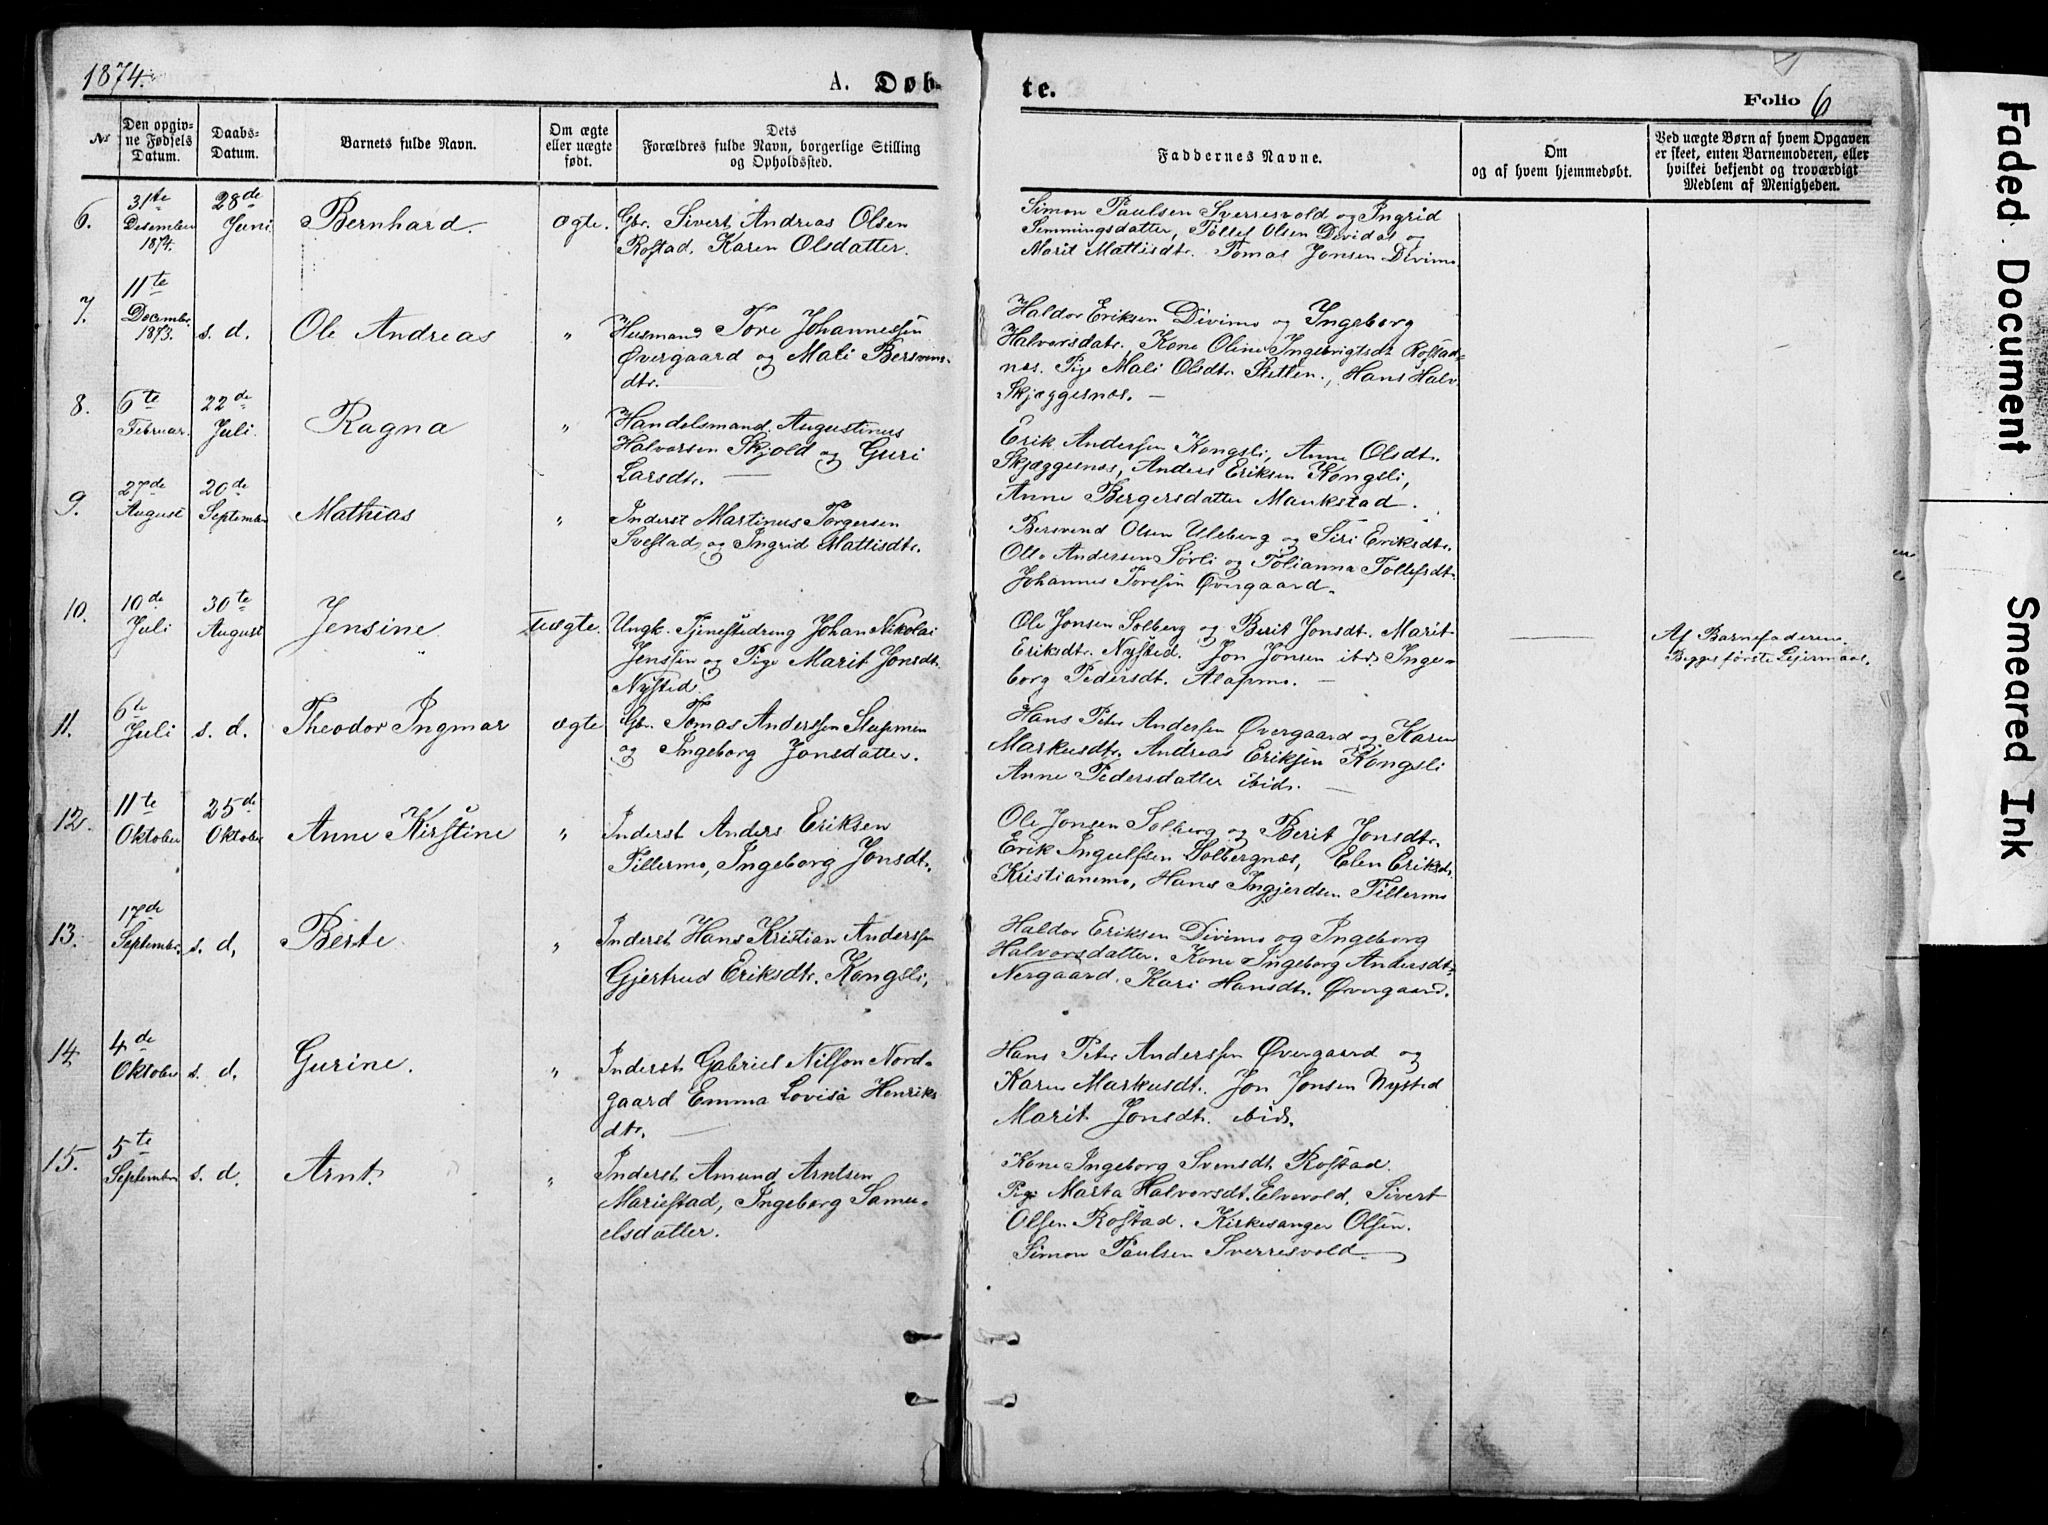 1874.
A. Døb-
te.
Folio 6
Nr
Den opgiv-
ne Fødsels
Datum.
Daabs-
Datum.
Barnets fulde Navn.
Om ægte
eller uægte
født.
Dets
Forældres fulde Navn, borgerlige Stilling
og Opholdssted.
Faddernes Navne.
Om
og af hvem hjemmedøbt.
Ved uægte Børn af hvem Opgaven
er skeet, enten Barnemoderen, eller
hvilket bekjendt og troværdigt
Medlem af Menigheden.
6.
31te
Desember
1874.
28de
Juni
Bernhard.
ægte.
Gbr. Sivert Andreas Olsen
Rostad, Karen Olsdatter.
Simon Paulsen Sverresvold og Ingrid
Semmingsdatter, Tollef Olsen Dividal og
Marit Mattisdtr. Tomas Jonsen Divimo
7.
11te
Decembr.
1873.
s. d.
Ole Andreas
"
Huusmand Tore Johannessen
Øvergaard og Mali Bersvens-
dtr.
Haldor Eriksen Divimo og Ingeborg
Halvorsdatr. Kone Oline Ingebrigtsdt Rostad-
næs. Pige Mali Olsdtr Sletten., Hans Halv.
Skjæggesnæs. —
8.
6te
Februar.
22de
Juli.
Ragna
"
Handelsmand Augustinus
Halvorsen Skjold og Guri
Larsdtr. —
Erik Anderssen Kongsli, Anne Olsdtr.
Skjæggesnæs, Anders Eriksen Kongsli,
Anne Bergersdatter Maukstad.
9.
27de
August
20de
September
Mathias
"
Inderst Martinus Torgersen
Svestad, og Ingrid Mattisdtr.
Bersvend Olsen Ulsberg og Siri Eriksdtr.
Olle Andersen Sørli og Tolianna Tollefsdt.
Johannes Toresen Øvergaard.
10.
10de
Juli
30te
August
Jensine
uægte.
Ungk. Tjenestedreng Johan Nikolai
Jenssen og Pige Marit Jonsdt.
Nysted
Ole Jonsen Solberg og Berit Jonsdt. Marit
Eriksdtr. Nysted. Jon Jonsen ibid. Inge-
borg Pedersdt. Alapmo. —
—
Af Barnefaderen.
Begges første Leiermaal.
11.
6te
Juli
s. d.
Theodor Ingmar
ægte
Gbr. Tomas Anderssen Stapmen
og Ingeborg Jonsdatter.
Hans Peter Anderssen Øvergaard og Karen
Markusdtr. Andreas Eriksen Kongsli
Anne Pedersdatter ibid. —
12.
11te
Oktober
25de
Oktober
Anne Kirstine
"
Inderst Anders Eriksen
Tillermo, Ingeborg Jonsdt.
Ole Jonsen Solberg og Berit Jonsdtr.
Erik Ingulfsen Solbergnæs, Elen Eriksdt.
Kristianemo, Hans Ingjerdsen Tillermo
13.
17de
Septembr.
s. d.
Berte
"
Inderst Hans Kristian Anderssen
Gjertrud Eriksdtr. Kongsli,
Haldor Eriksen Divimo og Ingeborg
Halvorsdatter. Kone Ingeborg Andersdt.
Nergaard. Kari Hansdtr. Øvergaard.
14.
4de
Oktober
s. d.
Gurine.
"
Inderst Gabriel Nilsson Nord-
gaard Emma Lovisa Henriks
dtr. —
Hans Peter Anderssen Øvergaard og
Karen Markusdt. Jon Jonsen Nysted
Marit Jonsdt. ibid.
15.
5te
September
s. d.
Arnt.
"
Inderst Amund Arntsen
Mariestad, Ingeborg Samu-
elsdatter.
Kone Ingeborg Svensdt Rostad.
Pige Marta Halvorsdt. Elvevold. Sivert
Olsen Rostad. Kirkesanger Olsen.
Simon Paulsen Sverresvold.
Faded Document
Smeared Ink